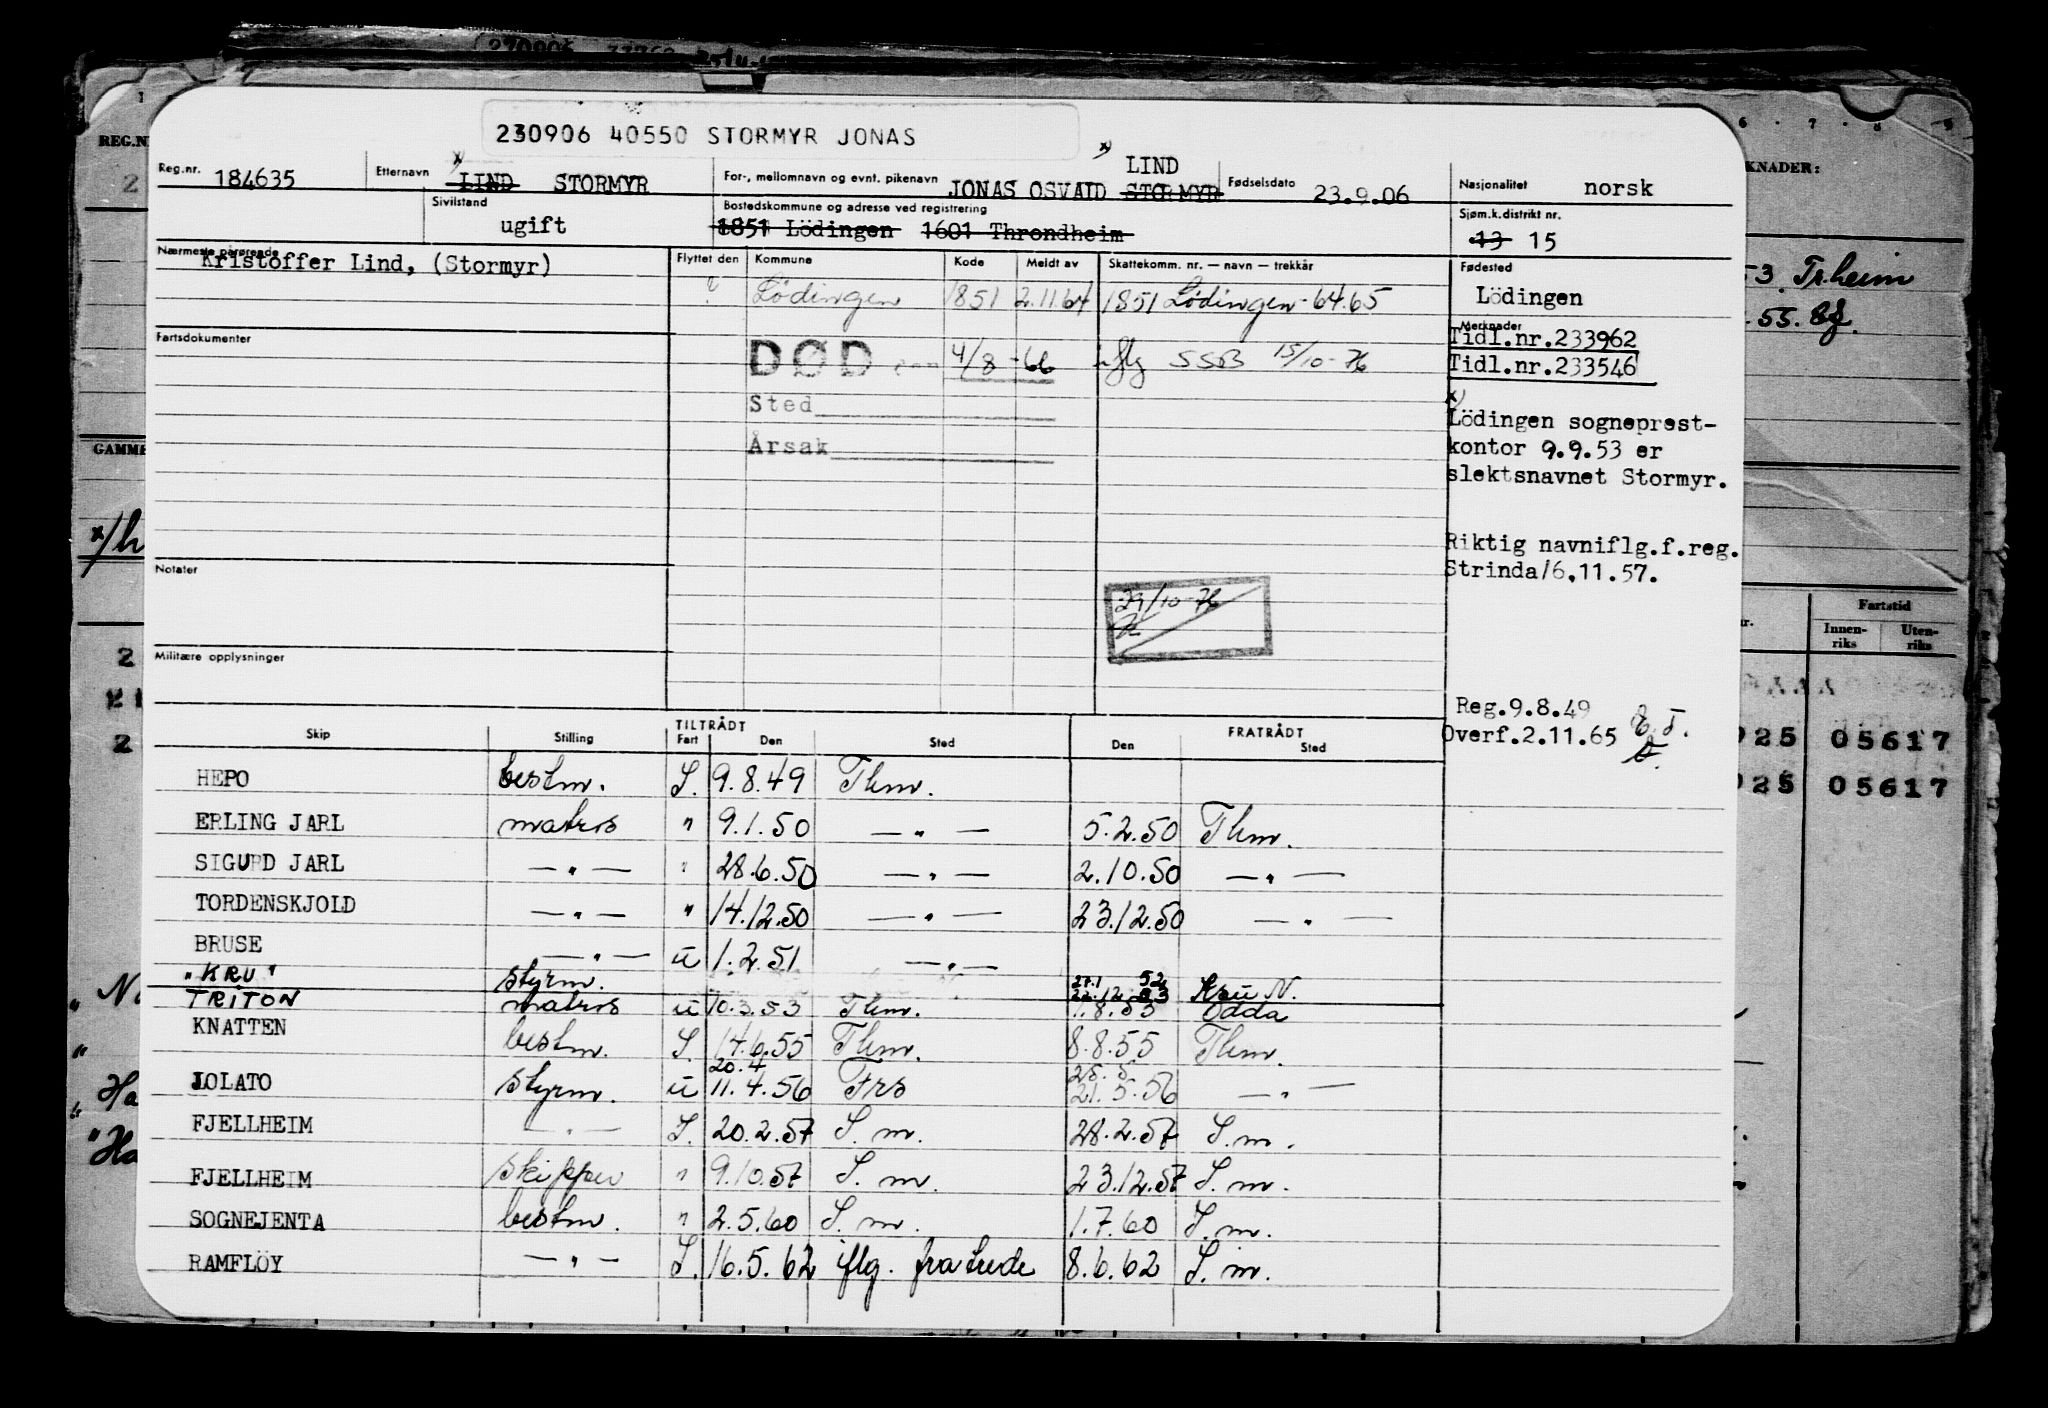 230906 40550 STORMYR JONAS
Reg.nr. 184635 Etternavn LIND STORMYR For-, mellomnavn og evnt. pikenavn JONAS OSVALD STORMYR LIND Fødselsdato 23.9.06 Nasjonalitet norsk
Sivilstand ugift Bostedskommune og adresse ved registrering 1851 Lödingen 1601 Throndheim Sjøm.k.distrikt nr. 13 15
Nærmeste pårørende Kristoffer Lind, (Stormyr) Flyttet den Kommune Kode Meldt av Skattekomm. nr. — navn — trekkår Fødested
? Lödingen 1851 2.11.64 1851 Lödingen-64.65 Lödingen
Fartsdokumenter
DØD den 4/8-66 iflg SSB 15/10-76
Sted
Årsak
Merknader
Tidl.nr.233962
Tidl.nr.233546
x)
Lödingen sogneprest-
kontor 9.9.53 er
slektsnavnet Stormyr.
Riktig navniflg.f.reg.
Strinda/6.11.57.
Notater
29/10-76
Militære opplysninger
Reg.9.8.49
Overf.2.11.65
TILTRÅDT FRATRÅDT
Skip Stilling Fart Den Sted Den Sted
HEPO bestm. I. 9.8.49 Thm.
ERLING JARL matros " 9.1.50 — " — 5.2.50 Thm.
SIGURD JARL — " — " 28.6.50 — " — 2.10.50 — " —
TORDENSKJOLD — " — " 14.12.50 — " — 23.12.50 — " —
BRUSE — " — u 1.2.51 — " —
"KRU" styrm.
TRITON matros u 10.3.53 Thm. 1.8.53 Odda
KNATTEN bestm. I. 14.6.55 Thm. 8.8.55 Thm.
20.4
JOLATO styrm. u 11.4.56 Frs 21.5.56 — " —
FJELLHEIM — " — I. 20.2.57 I.m. 28.2.57 I.m.
FJELLHEIM skipper " 9.10.57 I.m. 23.12.57 I.m.
SOGNEJENTA bestm. " 2.5.60 I.m. 1.7.60 I.m.
RAMFLÖY — " — I. 16.5.62 iflg. fratrede 8.6.62 I.m.
REG.N
KNADER:
53 Tr.heim
.55.
GAMME
Fartstid
Innen-
riks
Uten-
riks
025 05617
025 05617